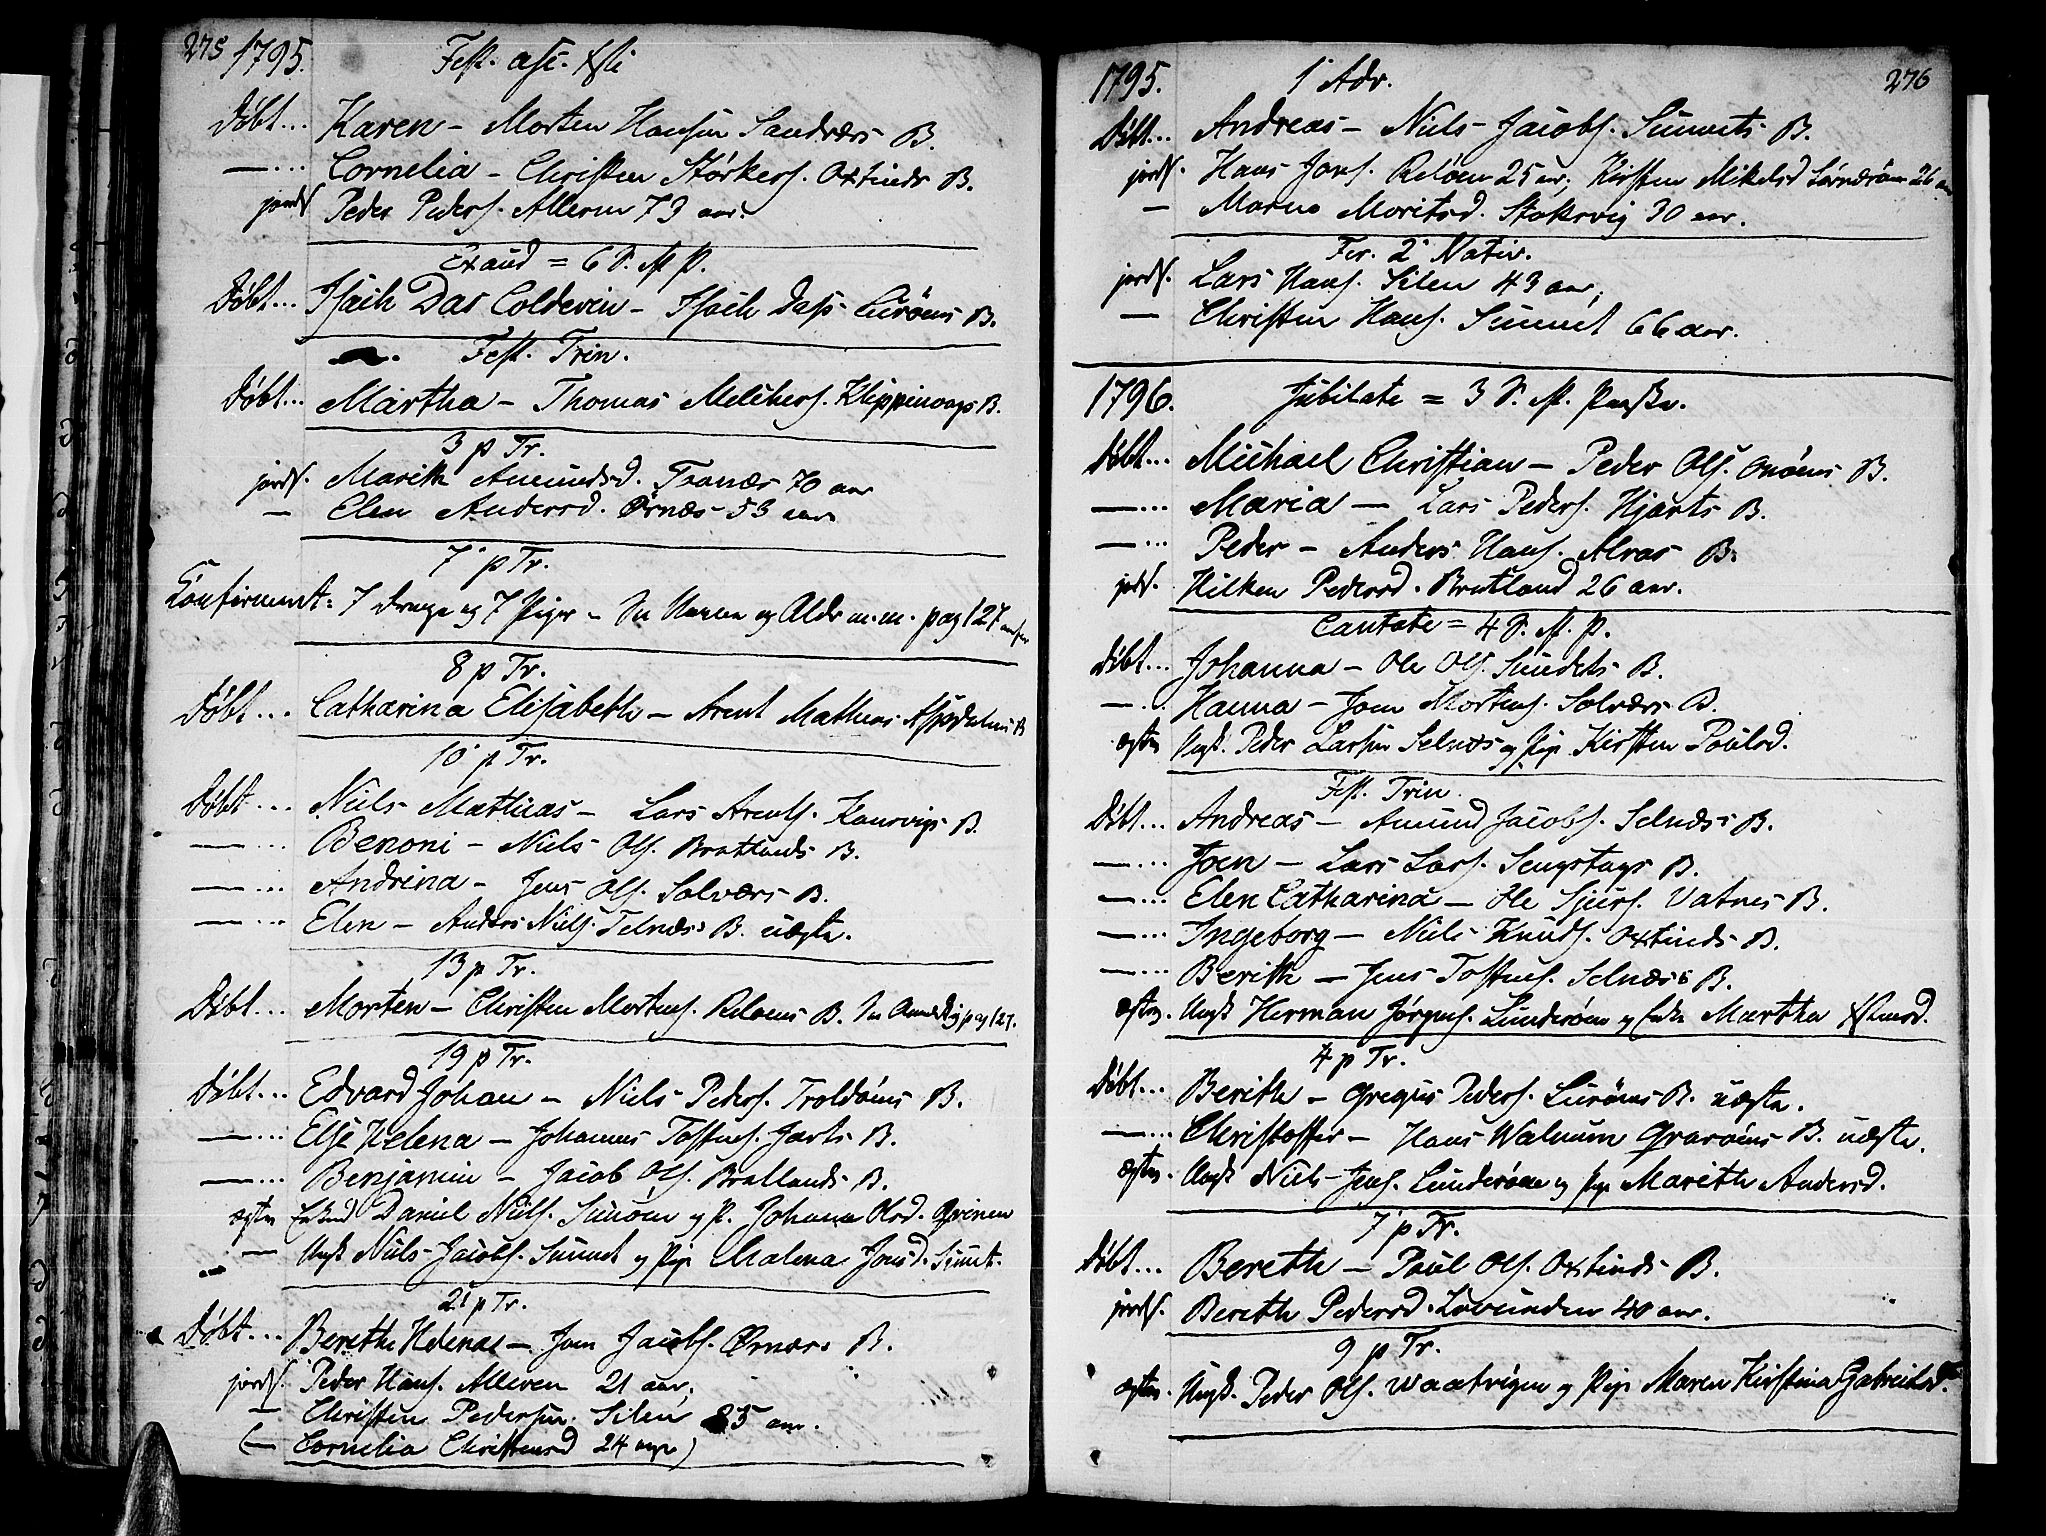 275 1795. Fest. asc. Xsti
Døbt... Karen - Morten Hansen Sandværs B.
— ... Cornelia - Christen Størkers. Oxtinds B.
jordf. Peder Peders. Alleren 73 aar
Exaud = 6 S. M. P.
Døbt... Isach Das Coldevin - Isach Dass Lurøens B.
Fest. Trin.
Døbt... Martha - Thomas Melchers. Klippinvaags B.
3 p Tr.
jordf. Marith Amundsd. Tranæs 70 aar
— Elen Andersd. Ørnæs 53 aar
7 p Tr.
Confirmert: 7 Drenge og 7 Piger - Navne og Alder m.m. pag 127
8 p Tr.
Døbt... Catharina Elisabeth - Arent Mathias Aspdalens B
10 p Tr.
Døbt... Niels Mathias - Lars Arents. Kansvigs B.
— ... Benoni - Niels Ols. Bratlands B.
— ... Andrina - Jens Ols. Solværs B.
— ... Elen - Anders Niels. Selnæss B. uægte.
13 p Tr.
Døbt... Morten - Christen Mortens. Reløens B. pag 127.
19 p Tr.
Døbt... Edvard Johan - Niels Peders. Troldøens B.
— ... Else Helena - Johannes Tostens. Jarts B.
— ... Benjamin - Jacob Ols. Bratlands B.
ægtev. Enkmd Daniel Niels. Sunøen og P. Johana Olsd. Qvinen
— Ungk Niels Jacobs. Sunnet og Pige Malena Jonsd. Sunnt.
21 p Tr.
Døbt... Berethe Helenae - Joen Jacobs. Ørnæss B.
jordf. Peder Hans. Alleren 21 aar.
— Christen Pedersen Silen 85 aar.
(— Cornelia Christensd 24 uger)
1795. 1 Adv. 276
Døbt... Andreas - Niels Jacobs. Sunnets B.
jordf. Hans Jons. Reløen 25 aar, Kirsten Mikelsd 26 aar
— Maren Moritsd. Stoksvig 30 aar.
Fer. 2 Nativ.
jordf. Lars Hans. Silen 43 aar,
— Christen Hans. Sunnet 66 aar.
1796. Jubilate = 3 S. M. Paaske.
Døbt... Michael Christian - Peder Ols. Onøens B.
— ... Maria - Lars Peders. Hjarts B.
— ... Peder - Anders Hans. Alvas B.
jordf. Hilken Pedersd. Bratland 26 aar.
Cantate = 4 S. M. P.
Døbt... Johanna - Ole Ols. Sundets B.
— .. Hanna - Joen Mortens. Solværs B.
ægtev Ungk. Peder Larsen Selnæs og Pige Kirsten Poulsd.
Fest. Trin.
Døbt... Andreas - Amund Jacobs. Selnæss B.
— ... Joen - Lars Lars. Sengstags B.
— ... Elen Catharina - Ole Sjurs. Vatnes B.
— ... Ingeborg - Niels Knuds. Oxtinds B.
— ... Berith - Jens Tostens. Selnæss B.
ægtev. Ungk Herman Jørgens. Lunderøen og Enke Martha Xstensd.
4 p Tr.
Døbt... Berith - Gregus Peders. Lurøens B. uægte.
— ... Christoffer - Hans Walnum Qvarøens B. uægte.
ægtev. Ungk Niels Jens. Lunderøen og Pige Marith Andersd.
7 p Tr.
Døbt... Bereth - Poul Ols. Oxtinds B.
jordf. Bereth Pedersd. Lovunden 40 aar.
9 p Tr.
ægtev. Ungk. Peder Ols. Waatvigen og Pige Maren Kirstina Gabrielsd.